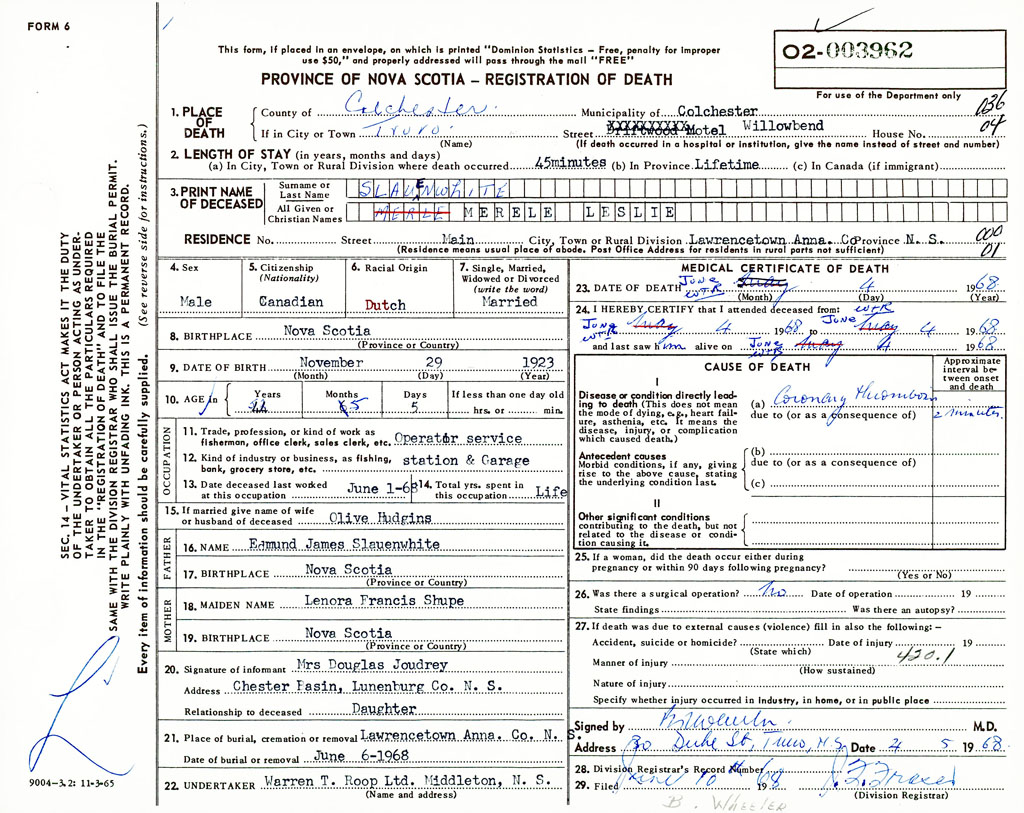 FORM 6
This form, if placed in an envelope, on which is printed "Dominion Statistics – Free, penalty for improper
use $50," and properly addressed will pass through the mail "FREE"
PROVINCE OF NOVA SCOTIA – REGISTRATION OF DEATH
O2-003962
For use of the Department only
036
04
1. PLACE OF DEATH
County of Colchester Municipality of Colchester
If in City or Town Truro Street XXXXXXXXXX Motel Willowbend House No.
(Name) (If death occurred in a hospital or institution, give the name instead of street and number)
2. LENGTH OF STAY (in years, months and days)
(a) In City, Town or Rural Division where death occurred 45minutes (b) In Province Lifetime (c) In Canada (if immigrant)
3. PRINT NAME OF DECEASED
Surname or Last Name SLAUENWHITE
All Given or Christian Names MERLE MERELE LESLIE
RESIDENCE No. Street Main City, Town or Rural Division Lawrencetown Anna. Co Province N. S.
(Residence means usual place of abode. Post Office Address for residents in rural parts not sufficient)
000
01
4. Sex
Male
5. Citizenship
(Nationality)
Canadian
6. Racial Origin
Dutch
7. Single, Married,
Widowed or Divorced
(write the word)
Married
8. BIRTHPLACE Nova Scotia
(Province or Country)
9. DATE OF BIRTH November 29 1923
(Month) (Day) (Year)
10. AGE in Years 44 Months 5 Days 5 If less than one day old
hrs. or min.
OCCUPATION
11. Trade, profession, or kind of work as
fisherman, office clerk, sales clerk, etc. Operator service
12. Kind of industry or business, as fishing,
bank, grocery store, etc. station & Garage
13. Date deceased last worked
at this occupation June 1-68
14. Total yrs. spent in
this occupation Life
15. If married give name of wife
or husband of deceased Olive Hudgins
FATHER
16. NAME Edmund James Slauenwhite
17. BIRTHPLACE Nova Scotia
(Province or Country)
MOTHER
18. MAIDEN NAME Lenora Francis Shupe
19. BIRTHPLACE Nova Scotia
(Province or Country)
20. Signature of informant Mrs Douglas Joudrey
Address Chester Basin, Lunenburg Co. N. S.
Relationship to deceased Daughter
21. Place of burial, cremation or removal Lawrencetown Anna. Co. N. S.
Date of burial or removal June 6-1968
22. UNDERTAKER Warren T. Roop Ltd. Middleton, N. S.
(Name and address)
MEDICAL CERTIFICATE OF DEATH
23. DATE OF DEATH June WTR May 4 1968
(Month) (Day) (Year)
24. I HEREBY CERTIFY that I attended deceased from: WTR
June WTR May 4 1968 to June May 4 1968
and last saw him alive on June WTR May 4 1968
CAUSE OF DEATH
Approximate interval between onset and death
I
Disease or condition directly leading to death (This does not mean
the mode of dying, e.g., heart failure, asthenia, etc. It means the
disease, injury, or complication
which caused death.)
(a) Coronary Thrombosis 2 minutes
due to (or as a consequence of)
Antecedent causes
Morbid conditions, if any, giving
rise to the above cause, stating
the underlying condition last.
(b)
due to (or as a consequence of)
(c)
II
Other significant conditions
contributing to the death, but not
related to the disease or condition causing it.
25. If a woman, did the death occur either during
pregnancy or within 90 days following pregnancy?
(Yes or No)
26. Was there a surgical operation? No Date of operation 19
State findings Was there an autopsy?
27. If death was due to external causes (violence) fill in also the following: –
Accident, suicide or homicide? Date of injury 19
(State which)
420.1
Manner of injury
(How sustained)
Nature of injury
Specify whether injury occurred in Industry, in home, or in public place
Signed by M.D.
Address 30 Duke St, Truro, N.S. Date 4 5 1968
28. Division Registrar's Record Number
29. Filed June 10 1968 J. F. Fraser
(Division Registrar)
B. WHEELER
SEC. 14 – VITAL STATISTICS ACT MAKES IT THE DUTY
OF THE UNDERTAKER OR PERSON ACTING AS UNDERTAKER TO OBTAIN ALL THE PARTICULARS REQUIRED
IN THE "REGISTRATION OF DEATH" AND TO FILE THE
SAME WITH THE DIVISION REGISTRAR WHO SHALL ISSUE THE BURIAL PERMIT.
WRITE PLAINLY WITH UNFADING INK. THIS IS A PERMANENT RECORD.
Every item of information should be carefully supplied. (See reverse side for instructions.)
9004–3.2: 11-3-65